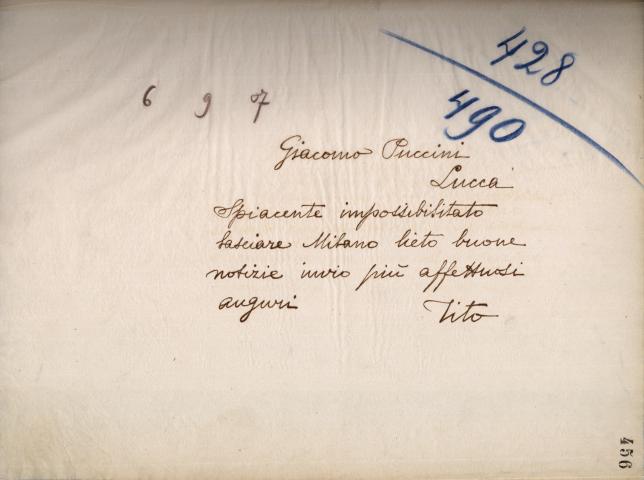 428
490
6 9 7
Giacomo Puccini
Lucca
Spiacente impossibilitato
lasciare Milano lieto buone
notizie invio più affettuosi
auguri Tito
456